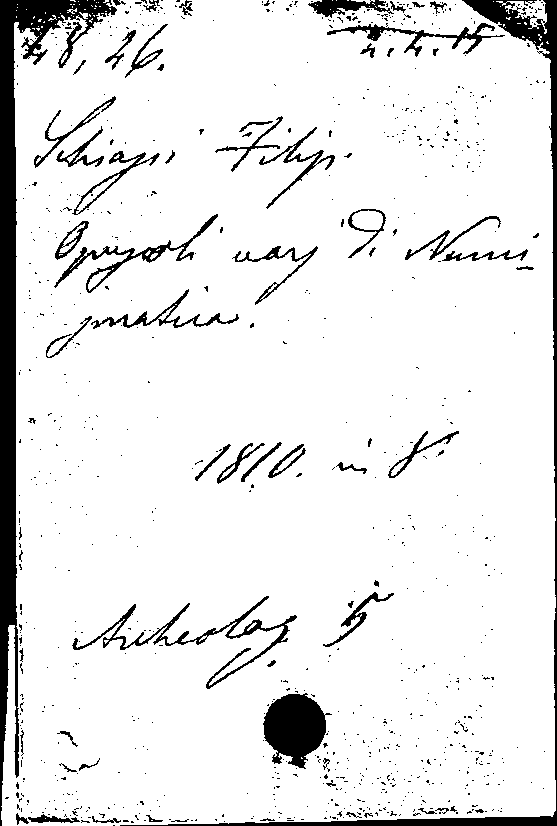 48,26. 2.4.15
Schiassi Filip.
Opuscoli varj di Numi-
smatica.
1810. in 8.
Archeolog. 5